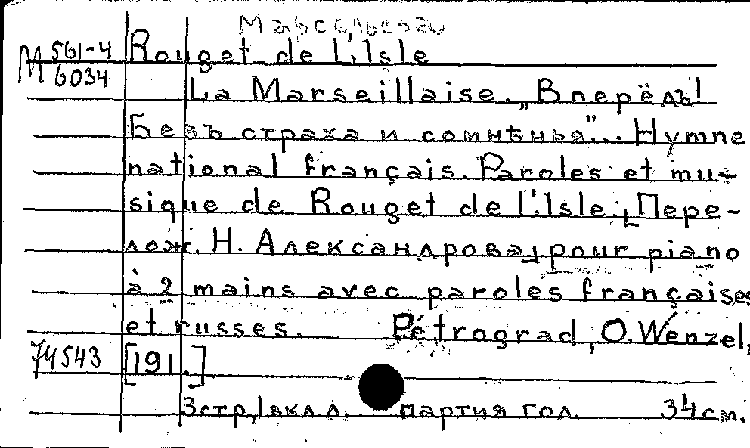 Марсельеза
М 561-4 Rouget de L'Isle
6034
La Marseillaise. „Вперёдъ!
Безъ страха и сомнѣнья"... Hymne
national français. Paroles et mu-
sique de Rouget de L'Isle. [Пере-
лож. Н. Александрова] pour piano
à 2 mains avec paroles françaises
et russes. Petrograd, O. Wenzel,
74543 [191.]
3 стр., 1 вкл. л. партия гол. 34 см.